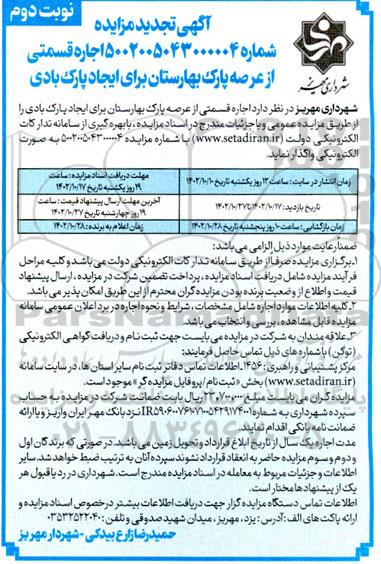 نوبت دوم
آگهی تجدید مزایده
شماره ۵۰۰۲۰۰۵۰۴۳۰۰۰۰۰۴ اجاره قسمتی
از عرصه پارک بهارستان برای ایجاد پارک بادی
شهرداری مهریز
شهرداری مهریز در نظر دارد اجاره قسمتی از عرصه پارک بهارستان برای ایجاد پارک بادی را
از طریق مزایده عمومی و با جزئیات مندرج در اسناد مزایده، با بهره گیری از سامانه تدارکات
الکترونیکی دولت (www.setadiran.ir) با شماره مزایده ۵۰۰۲۰۰۵۰۴۳۰۰۰۰۰۴ به صورت
الکترونیکی واگذار نماید.
زمان انتشار در سایت: ساعت ۱۳ روز یکشنبه تاریخ ۱۴۰۲/۱۰/۱۰
مهلت دریافت اسناد مزایده: ساعت
۱۹ روز یکشنبه تاریخ ۱۴۰۲/۱۰/۱۷
تاریخ بازدید: ۱۴۰۲/۱۰/۱۷ تا ۱۴۰۲/۱۰/۲۷
آخرین مهلت ارسال پیشنهاد قیمت: ساعت
۱۹ روز چهارشنبه تاریخ ۱۴۰۲/۱۰/۲۷
زمان بازگشایی: ساعت ۱۰ روز پنجشنبه تاریخ ۱۴۰۲/۱۰/۲۸
زمان اعلام به برنده: ۱۴۰۲/۱۰/۲۸
ضمناً رعایت موارد ذیل الزامی می باشد:
۱. برگزاری مزایده صرفا از طریق سامانه تدارکات الکترونیکی دولت می باشد و کلیه مراحل
فرآیند مزایده شامل دریافت اسناد مزایده، پرداخت تضمین شرکت در مزایده، ارسال پیشنهاد
قیمت و اطلاع از وضعیت برنده بودن مزایده گران محترم از این طریق امکان پذیر می باشد.
۲. کلیه اطلاعات موارد اجاره شامل مشخصات، شرایط و نحوه اجاره در برد اعلان عمومی سامانه
مزایده قابل مشاهده، بررسی و انتخاب می باشد.
۳. علاقه مندان به شرکت در مزایده می بایست جهت ثبت نام و دریافت گواهی الکترونیکی
(توکن) با شماره های ذیل تماس حاصل فرمایند:
مرکز پشتیبانی و راهبری: ۱۴۵۶، اطلاعات تماس دفاتر ثبت نام سایر استان ها، در سایت سامانه
(www.setadiran.ir) بخش «ثبت نام / پروفایل مزایده گر» موجود است.
مزایده گران می بایست مبلغ ۲۳,۷۰۰,۰۰۰ ریال بابت ضمانت شرکت در مزایده به حساب
سپرده شهرداری به شماره نزد بانک مهر ایران واریز و یا ارائه
ضمانت نامه بانکی اقدام نمایند.
مدت اجاره یک سال از تاریخ ابلاغ قرارداد و تحویل زمین می باشد. در صورتی که برندگان اول
و دوم و سوم مزایده حاضر به انعقاد قرارداد نشوند سپرده آنان به ترتیب ضبط خواهد شد. سایر
اطلاعات و جزئیات مربوط به معامله در اسناد مزایده مندرج است. شهرداری در رد یا قبول هر
یک از پیشنهادها مختار است.
اطلاعات تماس دستگاه مزایده گزار جهت دریافت اطلاعات بیشتر در خصوص اسناد مزایده و
ارائه پاکت های الف: آدرس: یزد، مهریز، میدان شهید صدوقی و تلفن: ۰۳۵۳۲۵۲۲۰۴۰
حمیدرضا زارع بیدکی - شهردار مهریز